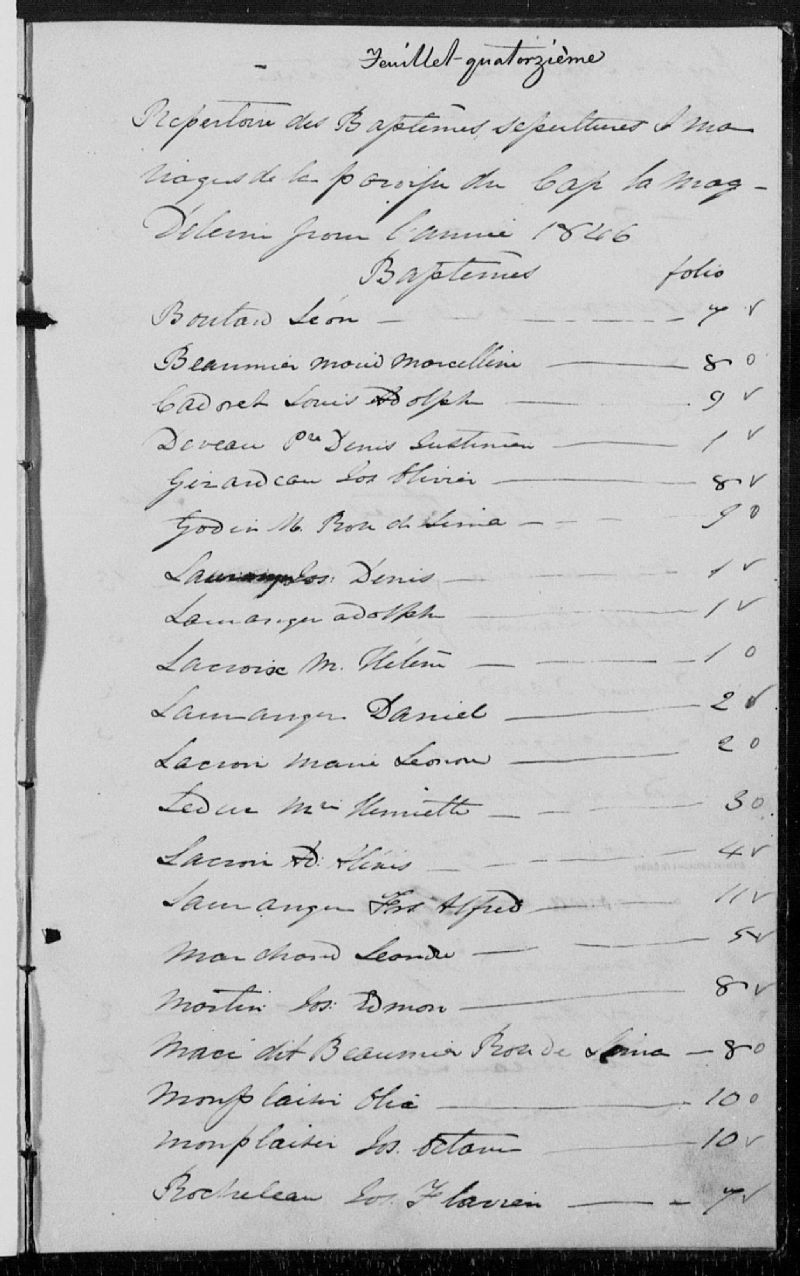 Feuillet quatorzième
Répertoire des Baptêmes, sépultures & ma
riages de la paroisse du Cap la Mag-
Déleine pour l'année 1846
Baptêmes folio
Boutard Léon 7 v
Beaumier Marie Marcelline 8 o
Cadoret Louis Adolph 9 v
Deveau Pre Denis Justinien 1 v
Girardeau Jos Olivier 8 v
Godin M. Rose de Lima 9 o
Lauranger Jos: Denis 1 v
Lauranger adolph 1 v
Lacroix M. Hélène 1 o
Lauranger Daniel 2 v
Lacroix Marie Leonore 2 o
Leduc Mie Henriette 3 o
Lacroix 4 v
Lauranger Frs Alfred 11 v
Marchand Leandre 5 v
Martin Jos: Edmon 8 v
Macé dit Beaumier Rose de Lima 8 o
Monplaisir 10 o
Monplaisir Jos. Octave 10 v
Rocheleau Jos. Flavien 7 v